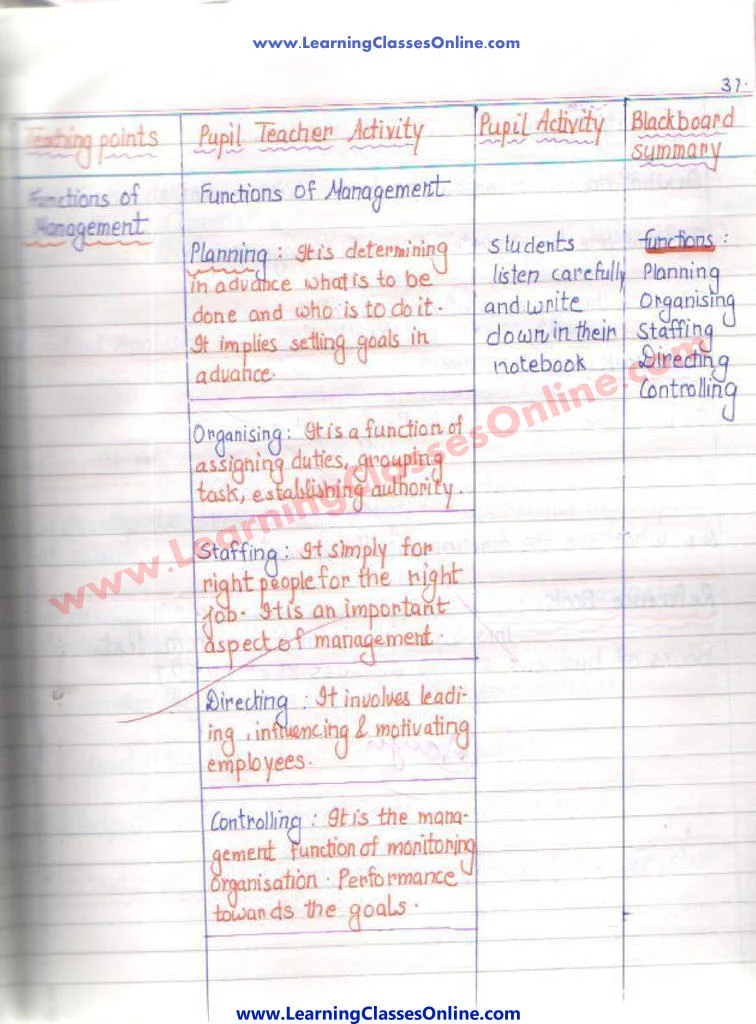 www.LearningClassesOnline.com
37.
Teaching points
Pupil Teacher Activity
Pupil Activity
Blackboard
summary
Functions of
Management
Functions of Management
Planning : It is determining
in advance what is to be
done and who is to do it.
It implies setling goals in
advance.
Organising : It is a function of
assigning duties, grouping
task, establishing authority.
Staffing : It simply for
right people for the right
job. It is an important
aspect of management.
Directing : It involves leadi-
ing, influencing & motivating
employees.
Controlling : It is the mana-
gement function of monitoring
organisation. Performance
towands the goals.
students
listen carefully
and write
down in their
notebook
functions :
Planning
Organising
Staffing
Directing
Controlling
www.LearningClassesOnline.com
www.LearningClassesOnline.com